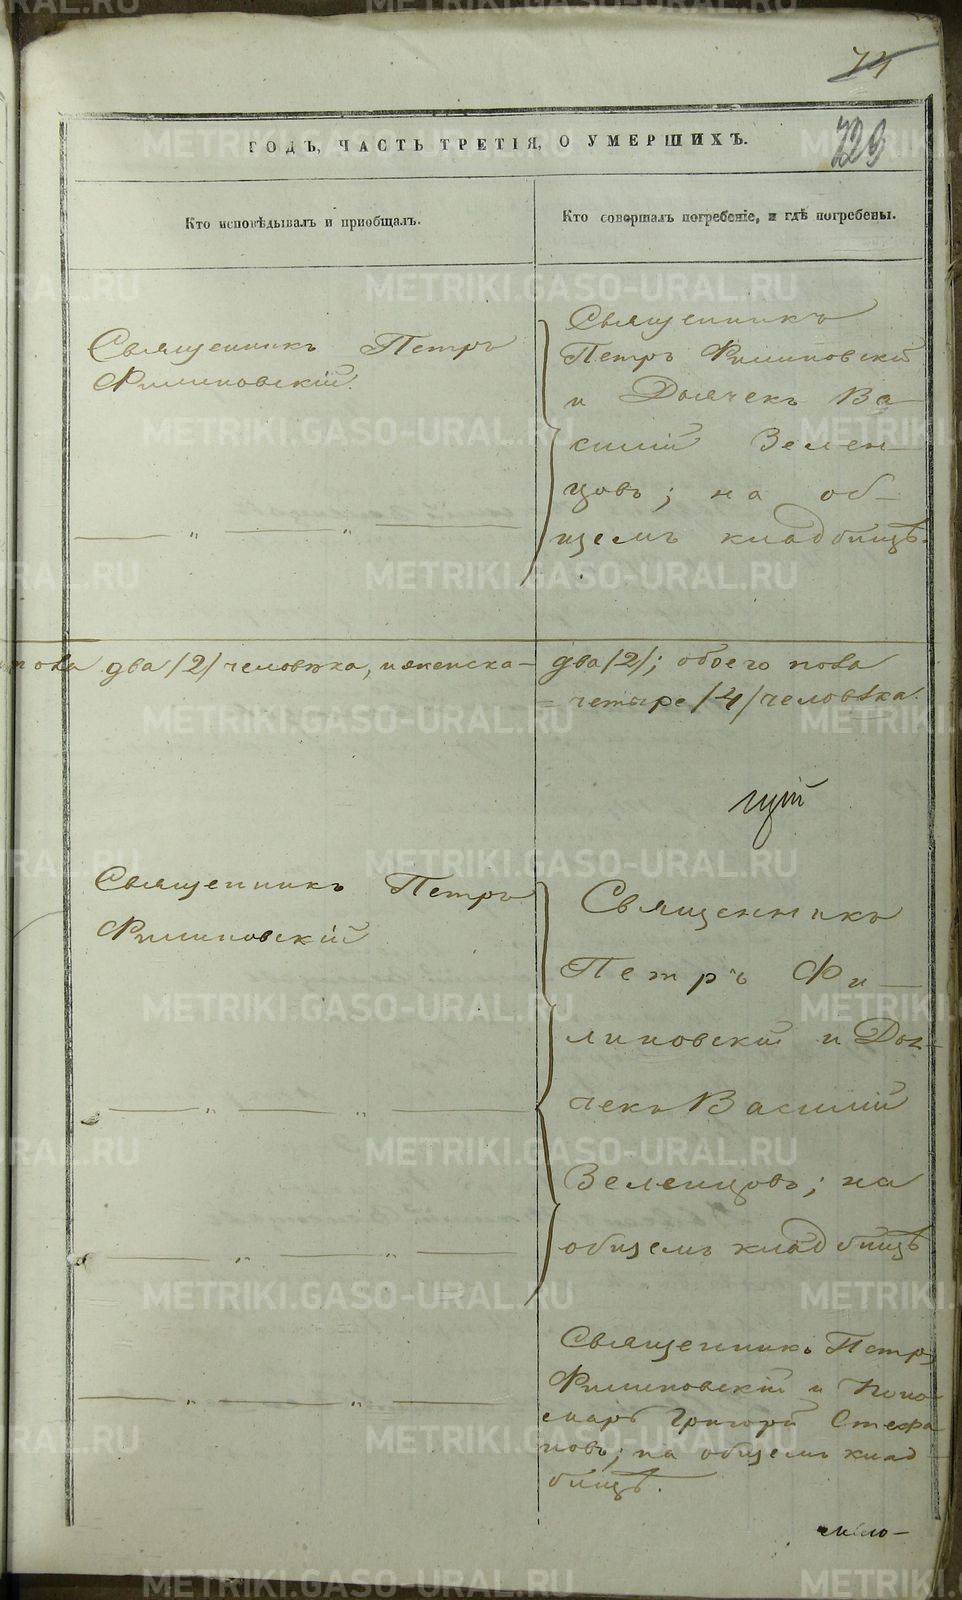 74
729
ГОДЪ, ЧАСТЬ ТРЕТІЯ, О УМЕРШИХЪ.
Кто исповѣдывалъ и пріобщалъ.
Кто совершалъ погребеніе, и гдѣ погребены.
Священникъ Петръ
Филиповскій.
Священникъ
Петръ Филиповскій
и Дьячекъ Ва-
силій Зелен-
цовъ; на об-
щемъ кладбищѣ.
пола два /2/ человѣка, и женска-
два /2/; обоего пола
= четыре /4/ человѣка.
Священникъ Петръ
Филиповскій
Священникъ
Петръ Фи-
липовскій и Дья-
чекъ Василій
Зеленцовъ; на
общемъ кладбищѣ
Священникъ Петръ
Филиповскій и Поно-
марь Григорій Стефа
новъ; на общемъ клад-
бищѣ.
число-
METRIKI.GASO-URAL.RU